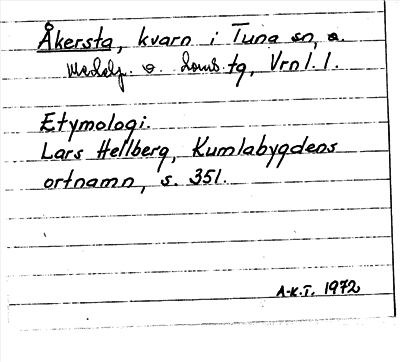 Åkersta, kvarn i Tuna sn, a.
Medelp. o. doms.tg, Vrnl. l.
Etymologi.
Lars Hellberg, Kumlabygdens
ortnamn, s. 351.
A-K.T. 1972